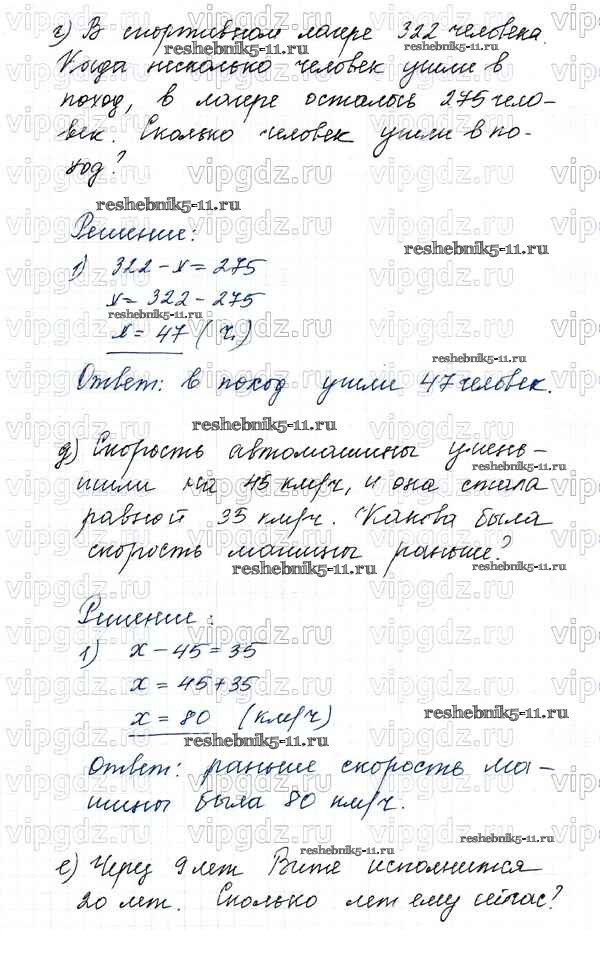 г) В спортивном лагере 322 человека.
Когда несколько человек ушли в
поход, в лагере осталось 275 чело-
век. Сколько человек ушли в по-
ход?
Решение:
1) 322 - x = 275
x = 322 - 275
x = 47 (ч.)
Ответ: в поход ушли 47 человек.
д) Скорость автомашины умень-
шили на 45 км/ч, и она стала
равной 35 км/ч. Какова была
скорость машины раньше?
Решение:
1) x - 45 = 35
x = 45 + 35
x = 80 (км/ч)
Ответ: раньше скорость ма-
шины была 80 км/ч.
е) Через 9 лет Вите исполнится
20 лет. Сколько лет ему сейчас?
reshebnik5-11.ru
vipgdz.ru